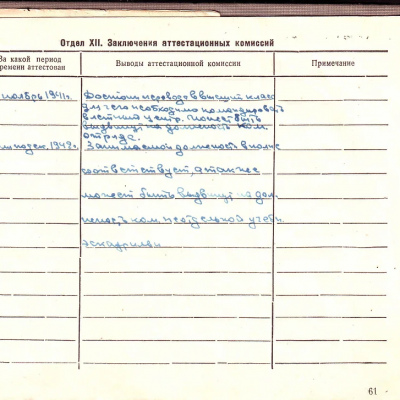 Отдел XII. Заключения аттестационных комиссий
За какой период
времени аттестован
Выводы аттестационной комиссии
Примечание
ноябрь 1941г. Достоин перевода в высший класс
для чего необходимо командировать
в летный центр. Может быть
выдвинут на должность ком.
отряда.
1942г. Занимаемой должности вполне
соответствует, а также
может быть выдвинут на дол
жность ком. отдельной учебн.
эскадрильи
61